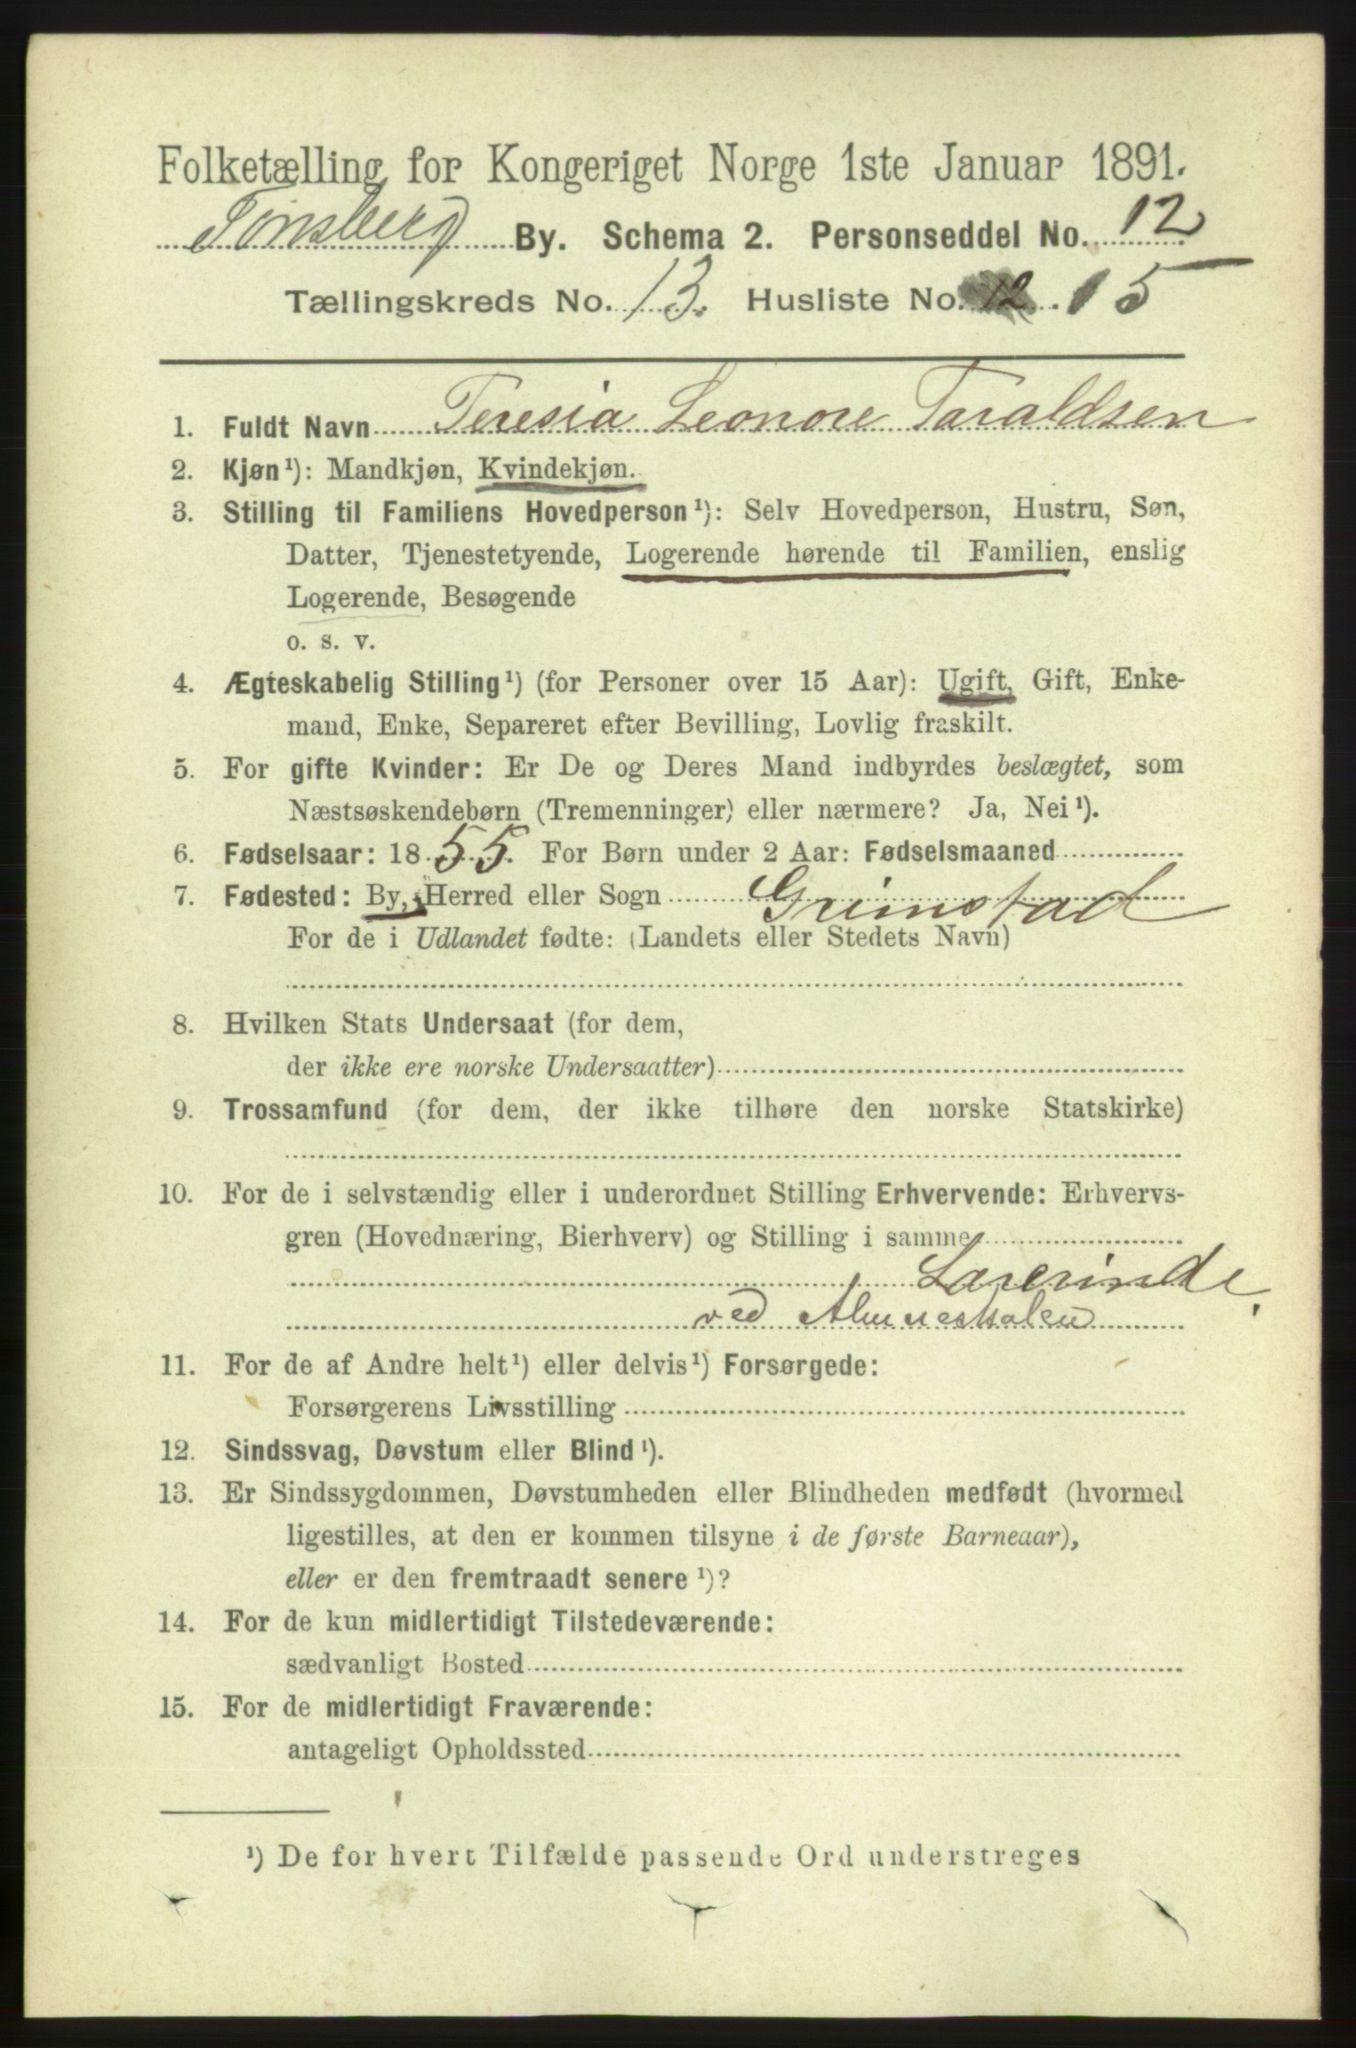 Folketælling for Kongeriget Norge 1ste Januar 1891.
Tønsberg By. Schema 2. Personseddel No. 12
Tællingskreds No. 13. Husliste No. 12 . 15
1. Fuldt Navn Teresia Leonore Taraldsen
2. Kjøn¹): Mandkjøn, Kvindekjøn.
3. Stilling til Familiens Hovedperson¹): Selv Hovedperson, Hustru, Søn,
Datter, Tjenestetyende, Logerende hørende til Familien, enslig
Logerende, Besøgende
o. s. v.
4. Ægteskabelig Stilling¹) (for Personer over 15 Aar): Ugift, Gift, Enke-
mand, Enke, Separeret efter Bevilling, Lovlig fraskilt.
5. For gifte Kvinder: Er De og Deres Mand indbyrdes beslægtet, som
Næstsøskendebørn (Tremenninger) eller nærmere? Ja, Nei¹).
6. Fødselsaar: 1855. For Børn under 2 Aar: Fødselsmaaned
7. Fødested: By, Herred eller Sogn Grimstad
For de i Udlandet fødte: (Landets eller Stedets Navn)
8. Hvilken Stats Undersaat (for dem,
der ikke ere norske Undersaatter)
9. Trossamfund (for dem, der ikke tilhøre den norske Statskirke)
10. For de i selvstændig eller i underordnet Stilling Erhvervende: Erhvervs-
gren (Hovednæring, Bierhverv) og Stilling i samme
Lærerinde
ved Almueskolen
11. For de af Andre helt¹) eller delvis¹) Forsørgede:
Forsørgerens Livsstilling
12. Sindssvag, Døvstum eller Blind¹).
13. Er Sindssygdommen, Døvstumheden eller Blindheden medfødt (hvormed
ligestilles, at den er kommen tilsyne i de første Barneaar),
eller er den fremtraadt senere¹)?
14. For de kun midlertidigt Tilstedeværende:
sædvanligt Bosted
15. For de midlertidigt Fraværende:
antageligt Opholdssted
¹) De for hvert Tilfælde passende Ord understreges